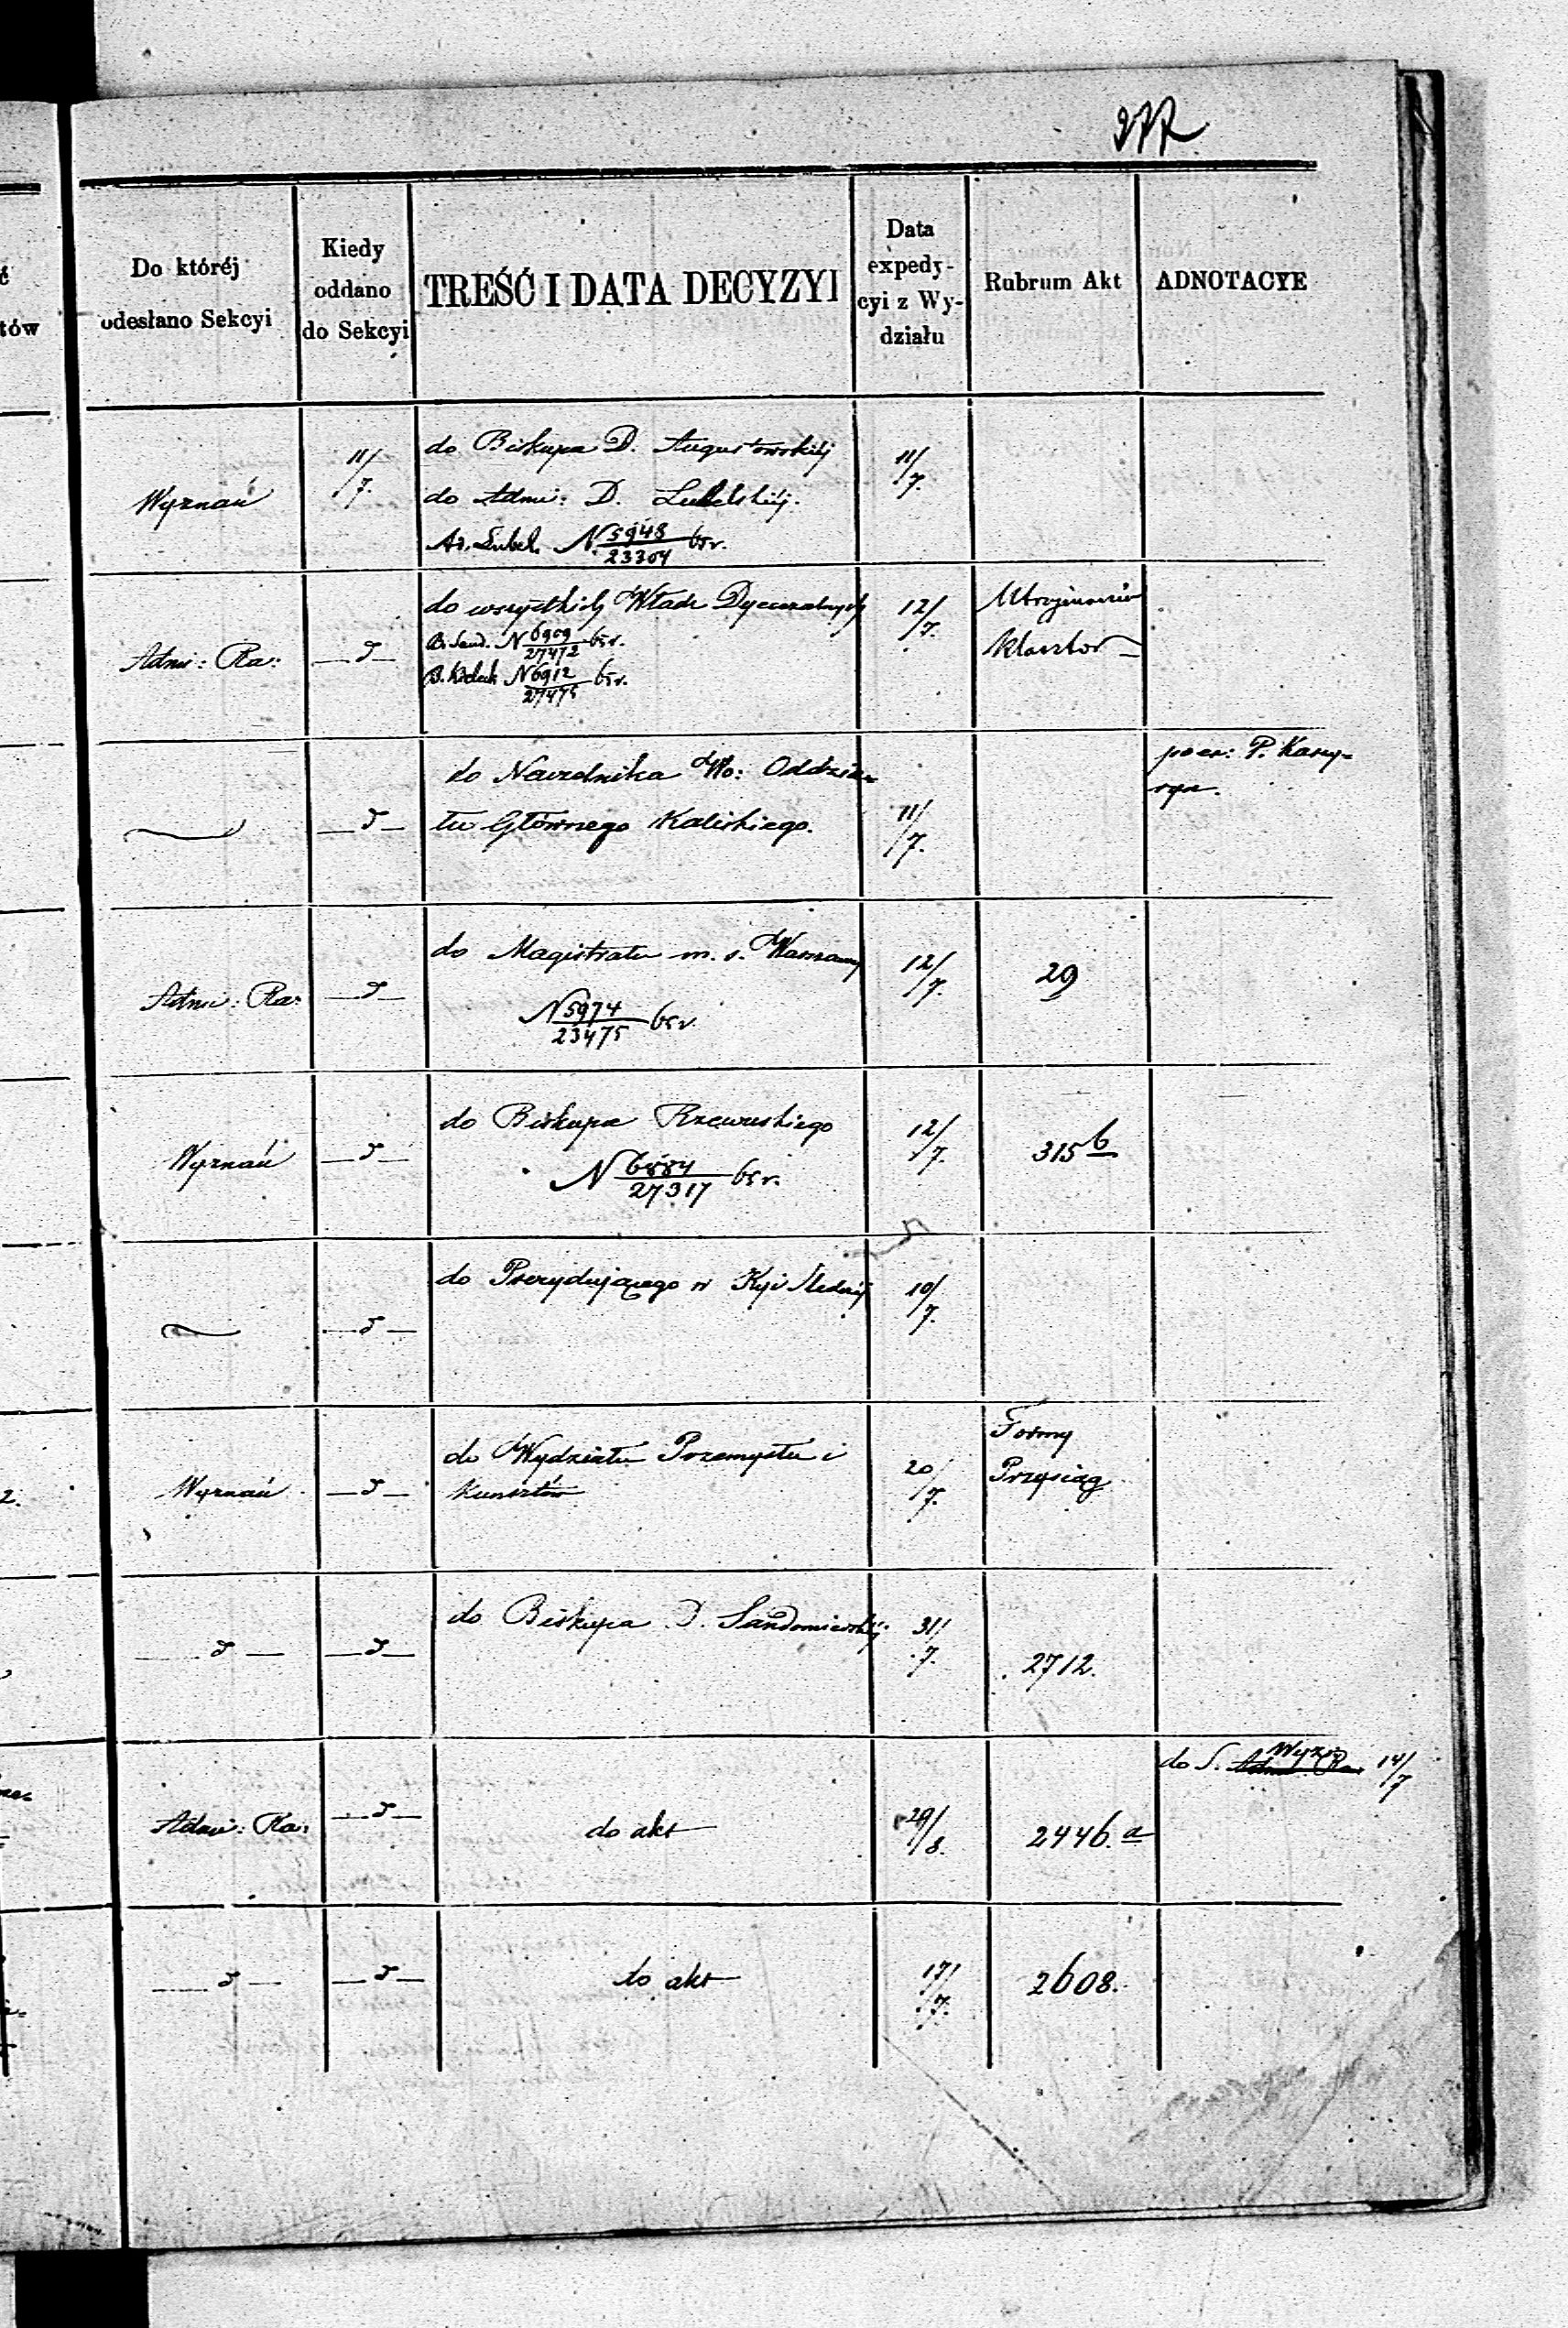 277
Do któréj
odesłano Sekcyi
Kiedy
oddano
do Sekcyi
TREŚĆ I DATA DECYZYI
Data
expedy-
cyi z Wy-
działu
Rubrum Akt
ADNOTACYE
tów
Wyznań
11/7.
do Biskupa D. Augustowskiéj
do Admi: D. Lubelskiéj.
Ar. Lubel. N. 5948/23304 65 r.
11/7.
Admi: Ra:
— d —
do wszystkich Władz Dyecezalnych
B. Sand. N 6909/27472 65 r.
N 6912/27475 65 r.
12/7.
Utrzymanie
Klasztor
— d —
do Naczelnika Wo: Oddzia-
łu Głównego Kaliskiego.
11/7.
P.
Admi: Ra:
— d —
do Magistratu m. s. Warszawy
N 5974/23475 65 r.
12/7.
29
Wyznań
— d —
do Biskupa Rzewuskiego
N 6884/27317 65 r.
12/7.
315 b
— d —
do Prezydującego w Kyi Śledczéj
10/7.
2.
Wyznań
— d —
do Wydziału Przemysłu i
Kunsztów
20/7.
Formy
Przysiąg
— d —
— d —
do Biskupa D. Sandomierskiéj
31/7.
2712.
Admi: Ra:
— d —
do akt
29/8.
2446. a
do S. Admi: Ra: Wyzn 14/7
— d —
— d —
do akt
17/7.
2608.